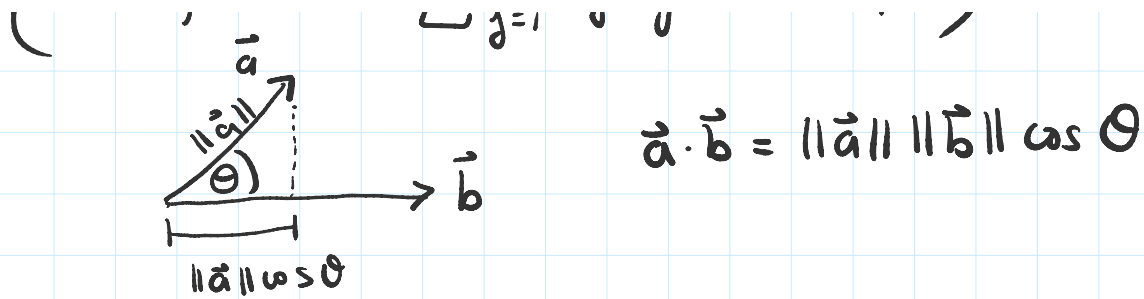 y=1
a⃗
||a⃗||
θ
b⃗
||a⃗|| cos θ
a⃗ · b⃗ = ||a⃗|| ||b⃗|| cos θ